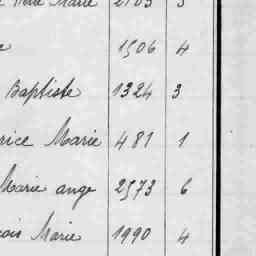 Marie 2703 3
e 1506 4
Baptiste 1324 3
rice Marie 481 1
Marie ange 2573 6
cois Marie 1990 4